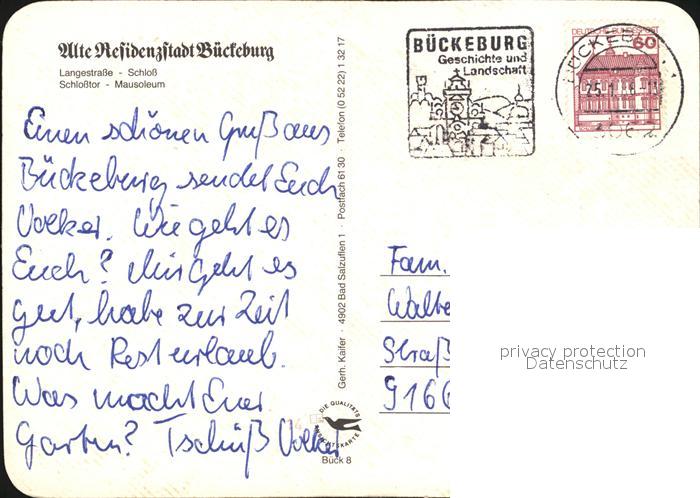 Alte Residenzstadt Bückeburg
Langestraße - Schloß
Schloßtor - Mausoleum
Einen schönen Gruß aus
Bückeburg sendet Euch
Volker. Wie geht es
Euch? Mir geht es
gut, habe zur Zeit
noch Resturlaub.
Was macht Euer
Garten? Tschüß Volker
Gerh. Kaifer · 4902 Bad Salzuflen 1 · Postfach 61 30 · Telefon (0 52 22) 1 32 17
DIE QUALITÄTS
ANSICHTSKARTE
Bück 8
BÜCKEBURG
Geschichte und
Landschaft
DEUTSCHE BUNDESPOST
60
BÜCKEBURG
Fam.
Walte
Straß
9166
privacy protection
Datenschutz